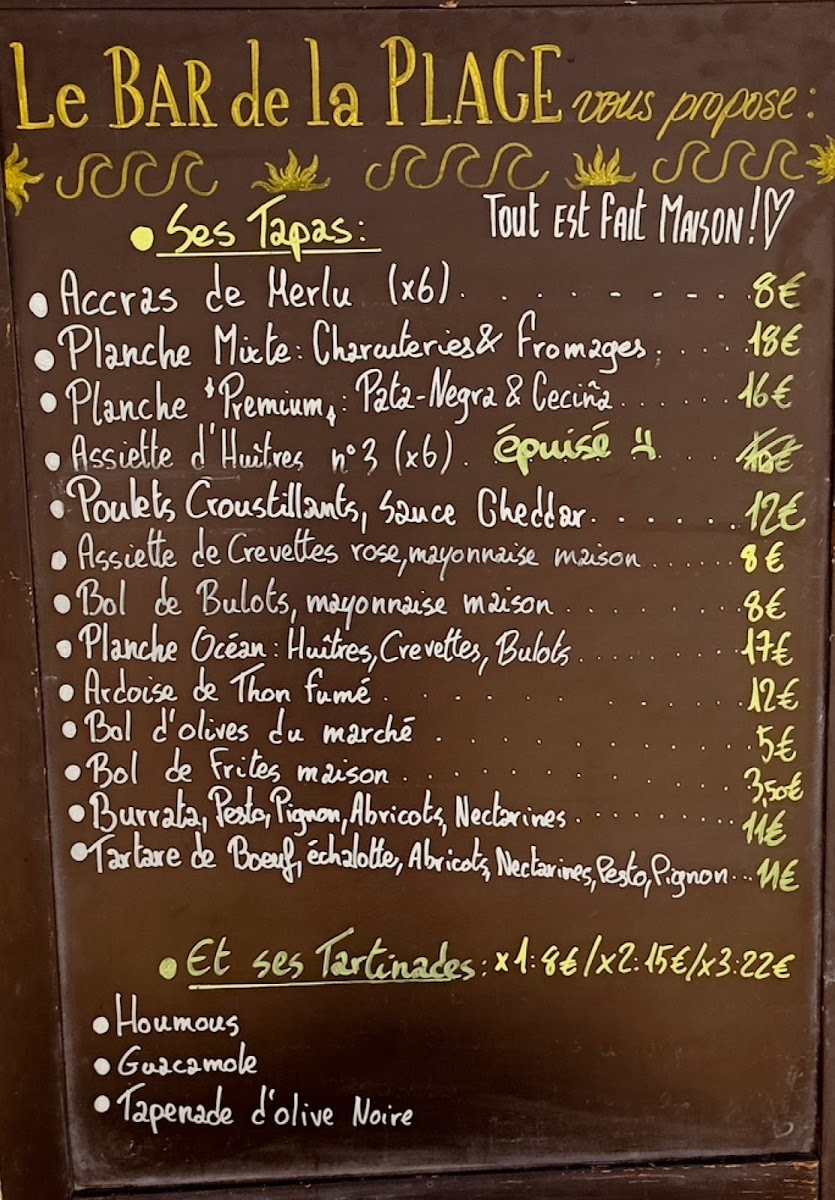 Le BAR de la PLAGE vous propose :
• Ses Tapas :
Tout est fait Maison ! ♡
• Accras de Merlu (x6). . . . . - - - - . . 8€
• Planche Mixte : Charcuteries & Fromages. . . . . 18€
• Planche "Premium" : Pata-Negra & Ceciña . . . . . . 16€
• Assiette d'Huîtres n°3 (x6). . épuisé . . . .
• Poulets Croustillants, Sauce Cheddar. . . . . . . 12€
• Assiette de Crevettes rose, mayonnaise maison . . . . . . 8€
• Bol de Bulots, mayonnaise maison . . . . . . . . . 8€
• Planche Océan : Huîtres, Crevettes, Bulots. . . . . . . . . 17€
• Ardoise de Thon fumé . . . . . . . . . . 12€
• Bol d'olives du marché . . . . . . . . . 5€
• Bol de Frites maison . . . . . . . . . . . 3,50€
• Burrata, Pesto, Pignon, Abricots, Nectarines . . . . . . . . . 11€
• Tartare de Boeuf, échalotte, Abricots, Nectarines, Pesto, Pignon . . . 11€
• Et ses Tartinades : x1 : 8€ / x2 : 15€ / x3 : 22€
• Houmous
• Guacamole
• Tapenade d'olive Noire